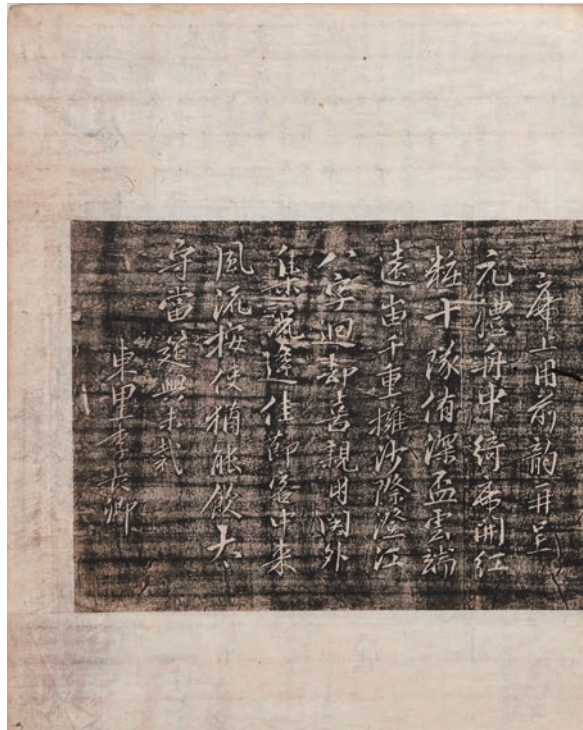 席上用前韵再呈
元禮舟中綺席開紅
粧十隊侑深盃雲端
遠岫千重擁沙際澄江
八字迴却喜親外
集況逢佳節客中来
風流按使猶能飲太
守當筵興未裁
東里李長卿